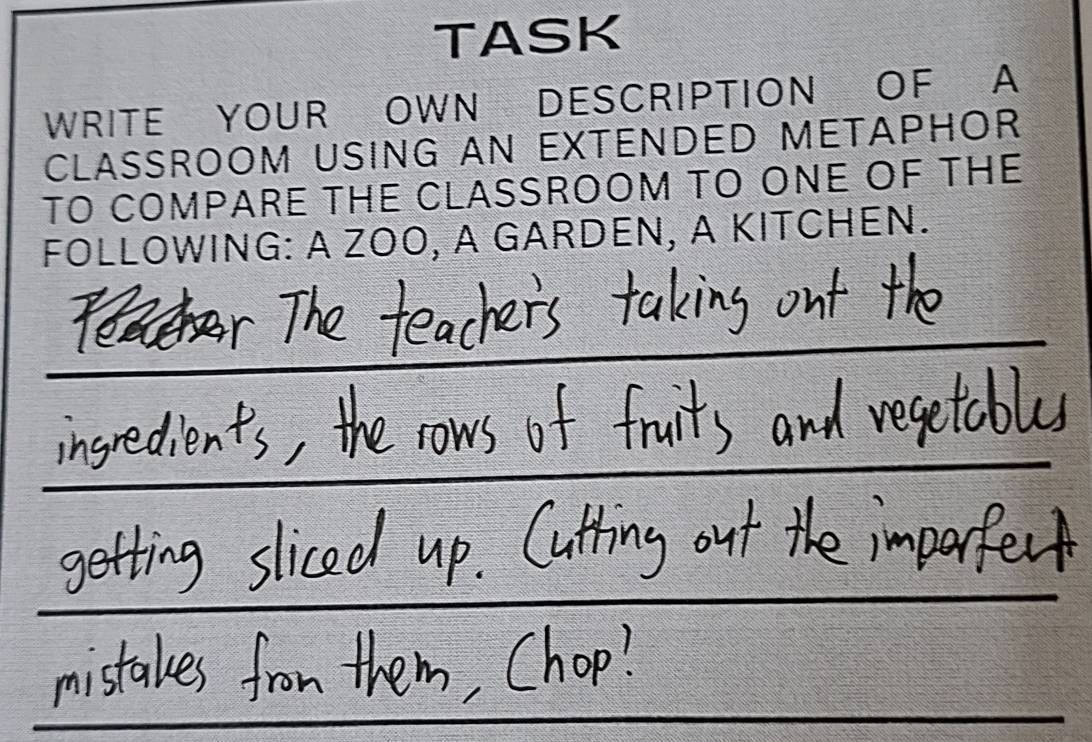 TASK
WRITE YOUR OWN DESCRIPTION OF A
CLASSROOM USING AN EXTENDED METAPHOR
TO COMPARE THE CLASSROOM TO ONE OF THE
FOLLOWING: A ZOO, A GARDEN, A KITCHEN.
Teacher The teacher's taking out the
ingredients, the rows of fruits and vegetables
getting sliced up. Cutting out the imperfect
mistakes from them, Chop!